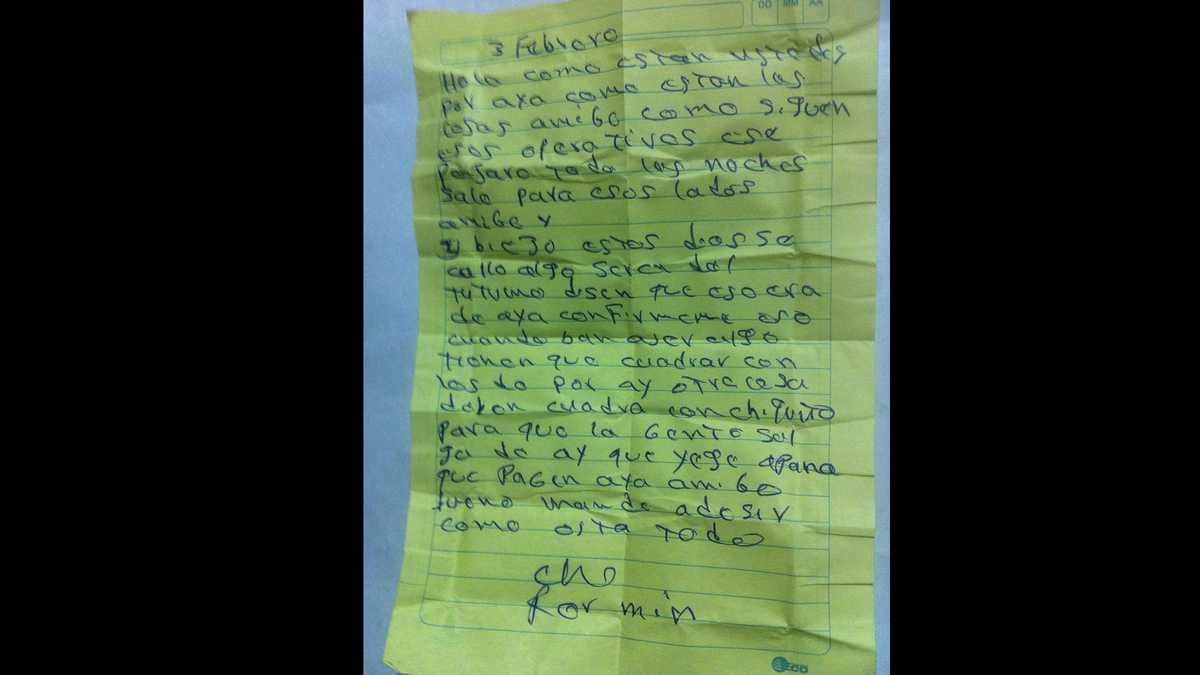 DD MM AA
3 Febrero
Hola como estan ustedes
por aya como estan las
cosas amigo como siguen
esos operativos ese
pajaro toda las noches
sale para esos lados
amigo y
biejo estos dias se
callo algo serca del
tutumo disen que eso era
de aya confirmeme eso
cuando ban aser algo
tienen que cuadrar con
los de por ay otra cosa
deben cuadra con chiquito
para que la gente sal
ga de ay que yege apana
que pagen aya amigo
bueno mande adesir
como esta todo
cho
fermin